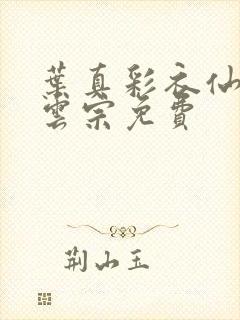 葉真彩衣仙
雲宗免費
荆山玉